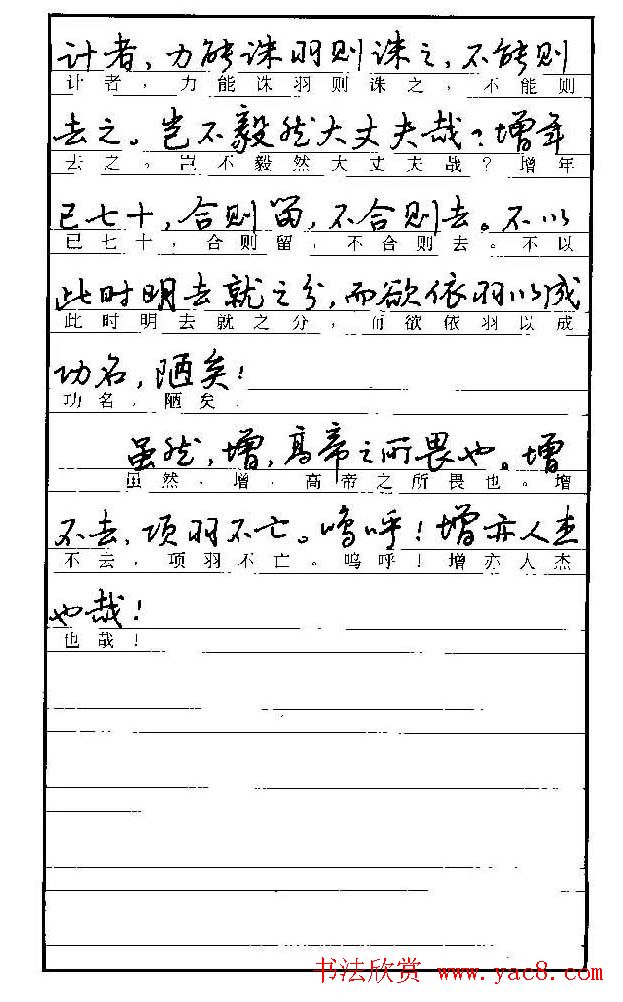 计者，力能诛羽则诛之，不能则
计者，力能诛羽则诛之，不能则
去之。岂不毅然大丈夫哉？增年
去之。岂不毅然大丈夫哉？增年
已七十，合则留，不合则去。不以
已七十，合则留，不合则去。不以
此时明去就之分，而欲依羽以成
此时明去就之分，而欲依羽以成
功名，陋矣！
功名，陋矣
虽然，增，高帝之所畏也。增
虽然，增，高帝之所畏也。增
不去，项羽不亡。呜呼！增亦人杰
不去，项羽不亡。呜呼！增亦人杰
也哉！
也哉！
书法欣赏 www.yac8.com